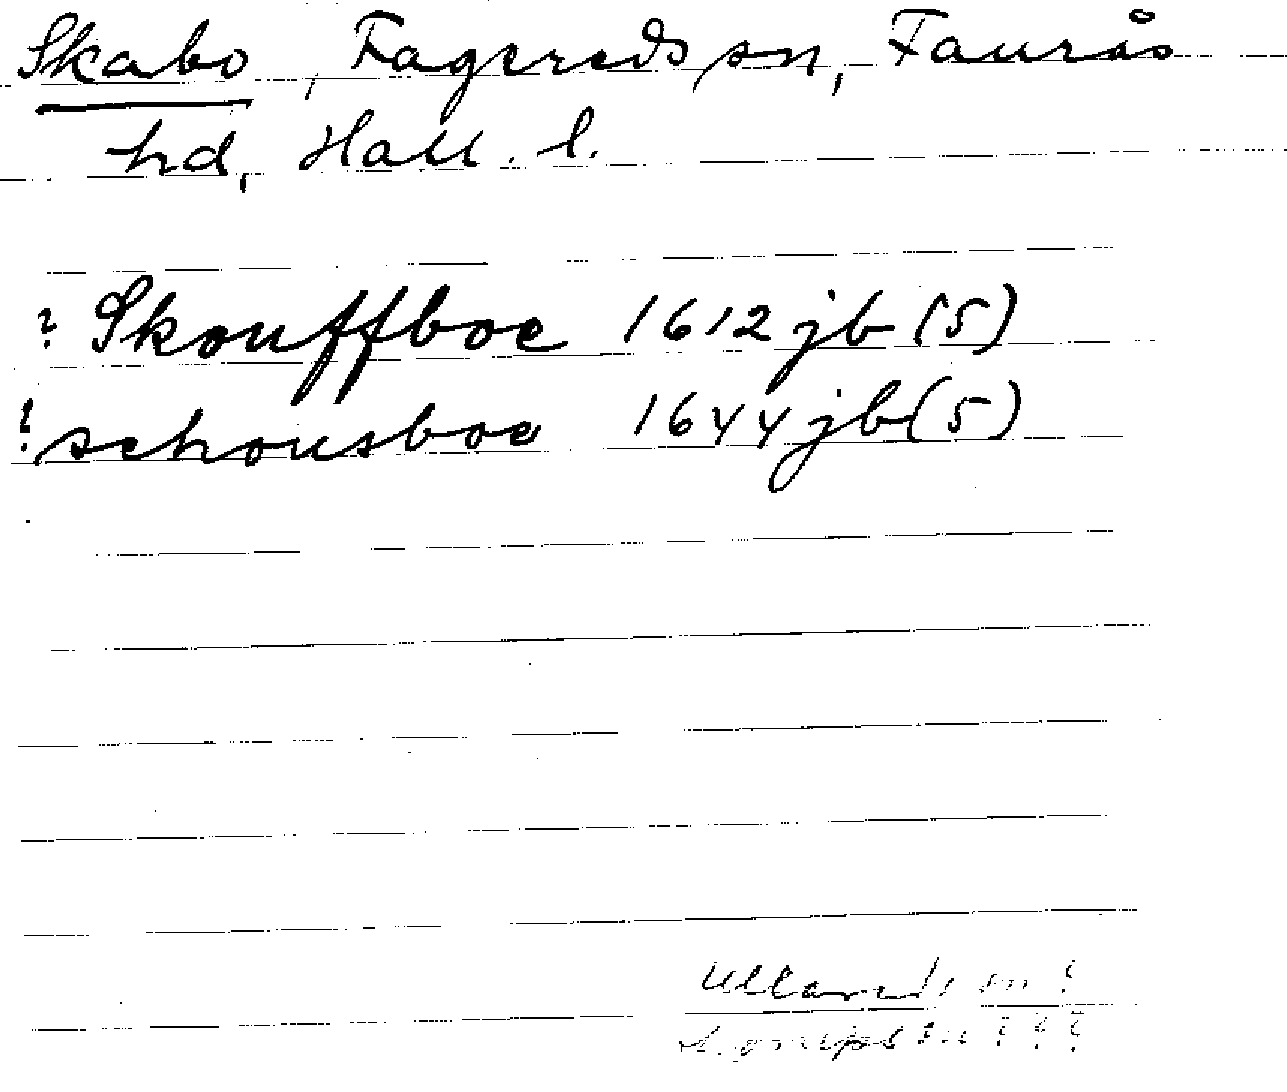 Skabo, Fagereds sn, Faurås
hd, Hall. l.
? Skouffboe 1612 jb (5)
! schousboe 1644 jb (5)
Ullareds sn ?